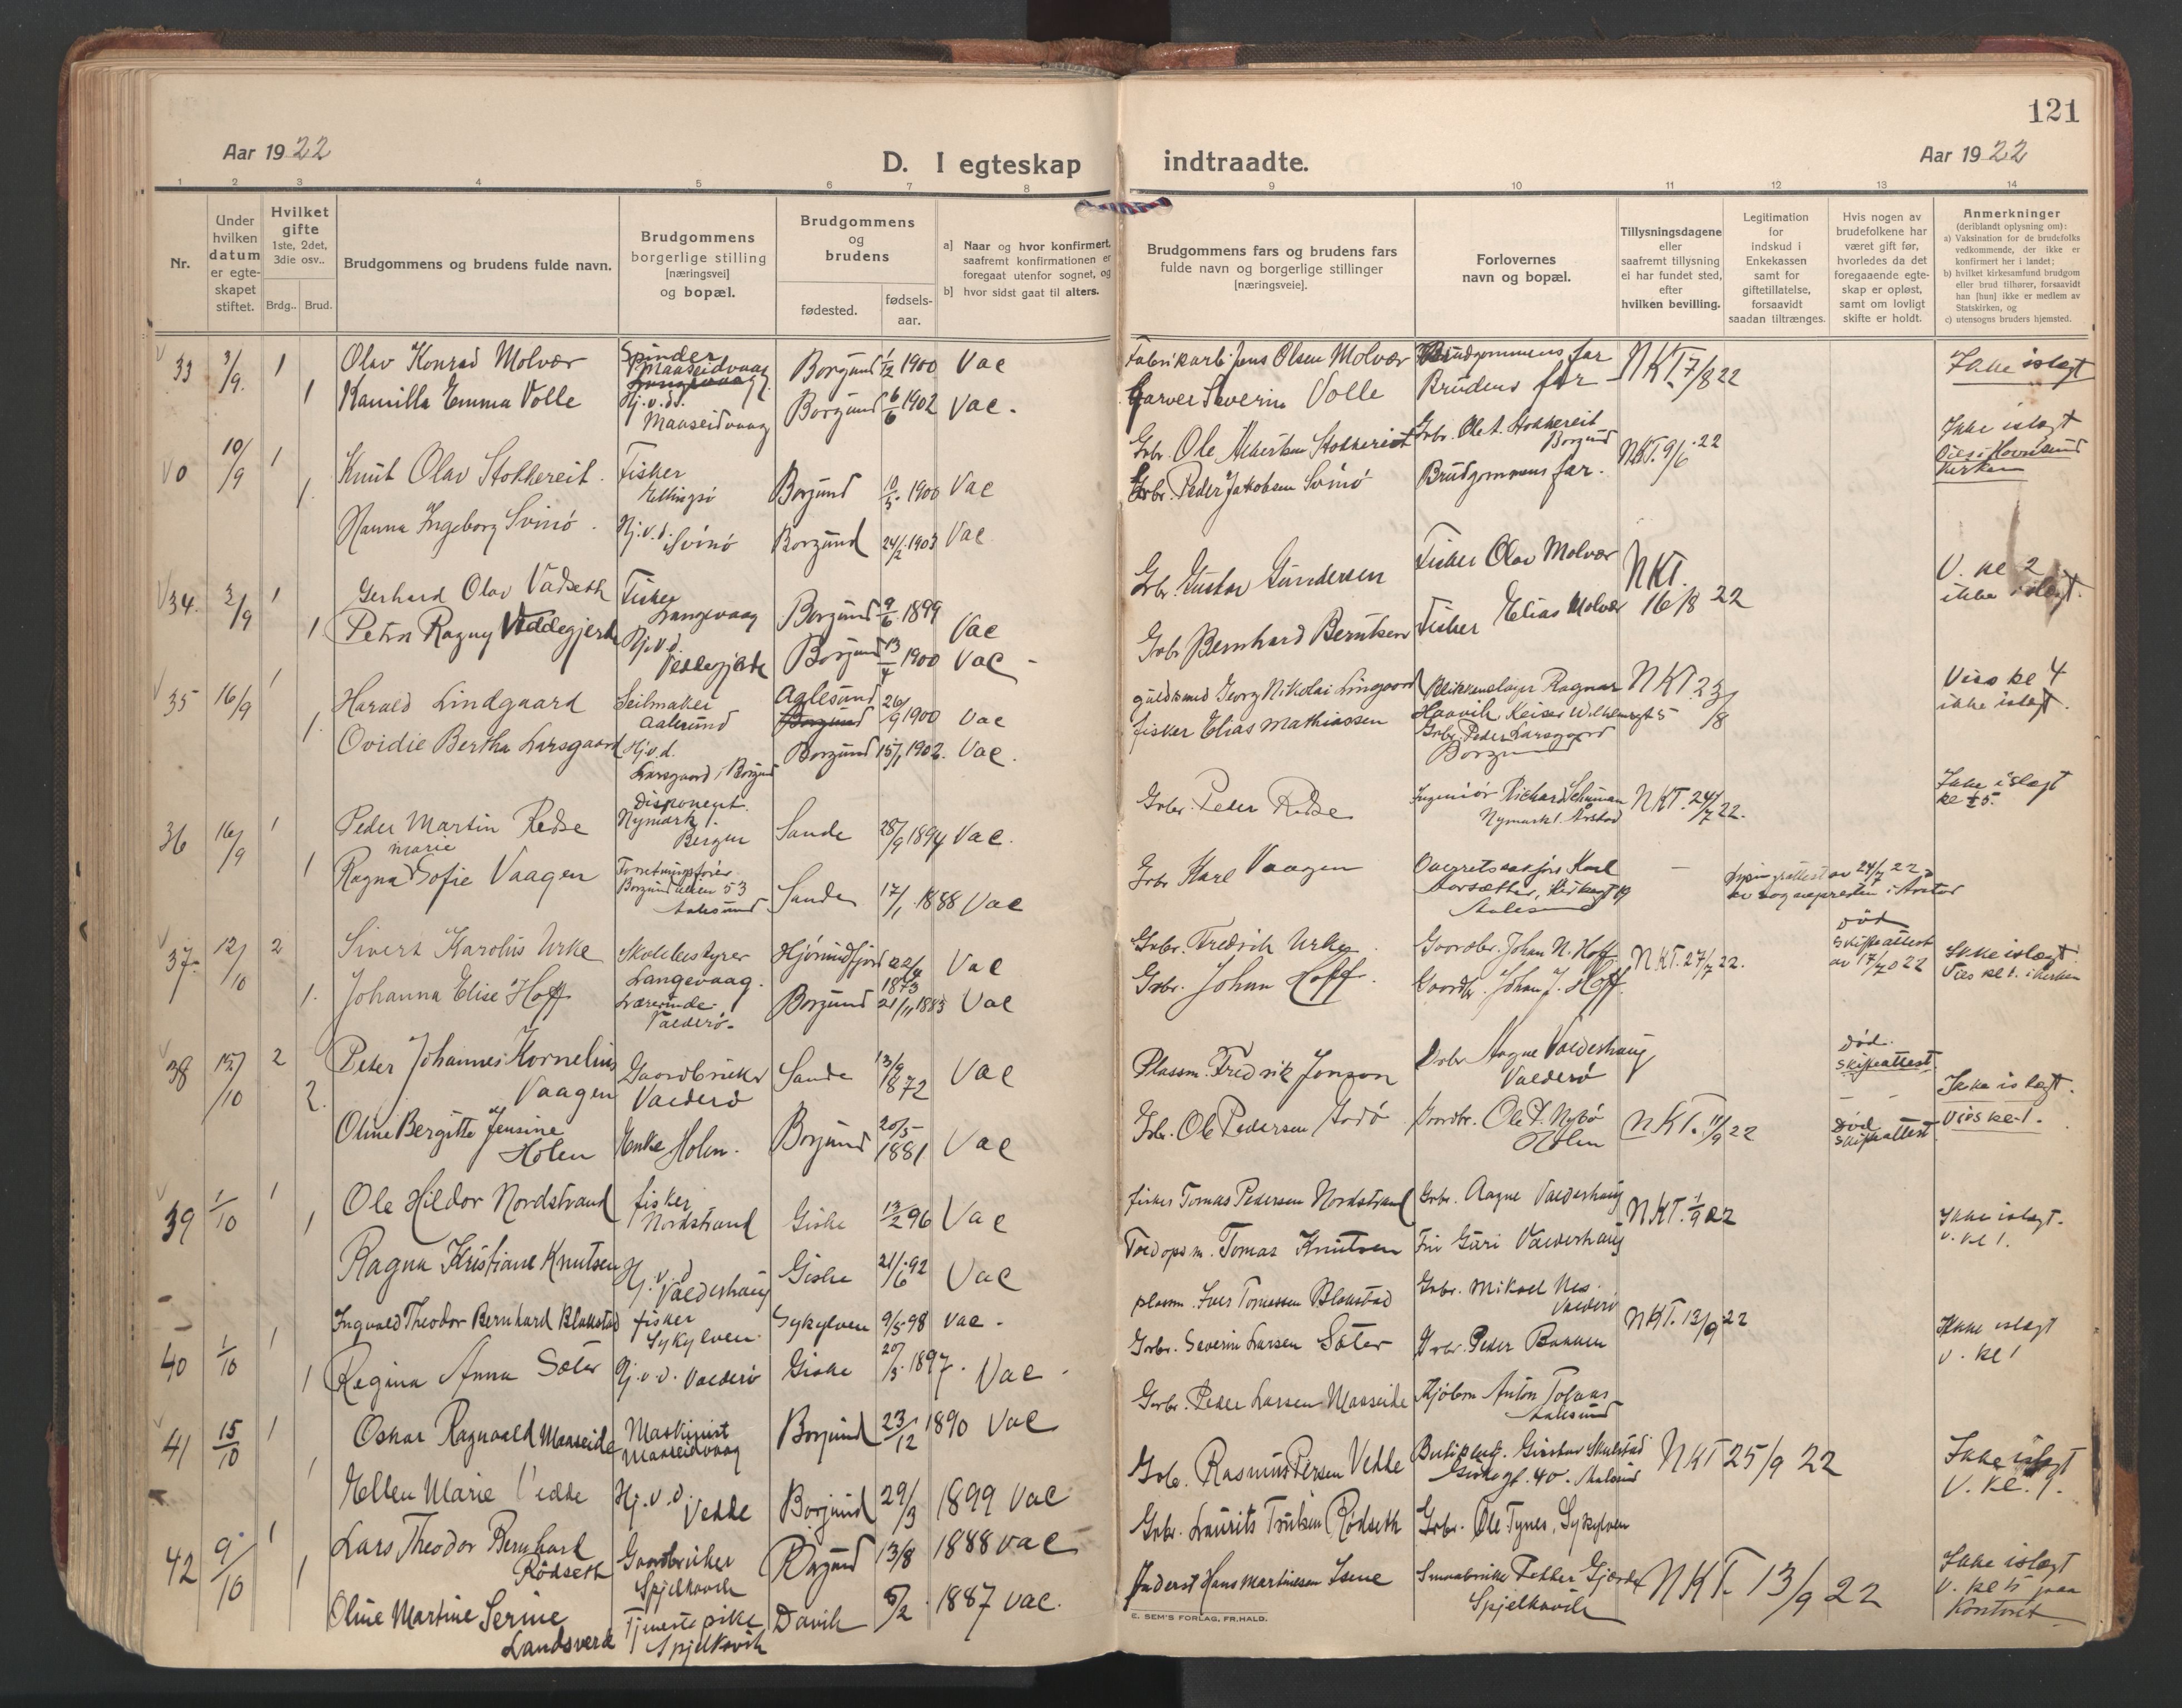 121
Aar 1922
D. I egteskap
indtraadte.
Aar 1922
1 2 3 4 5 6 7 8 9 10 11 12 13 14
Nr.
Under hvilken datum er egte-skapet stiftet.
Hvilket gifte
1ste, 2det, 3die osv..
Brdg.. Brud.
Brudgommens og brudens fulde navn.
Brudgommens borgerlige stilling
[næringsvei]
og bopæl.
Brudgommens og brudens
fødested.
fødsels-aar.
a] Naar og hvor konfirmert, saafremt konfirmationen er foregaat utenfor sognet, og
b] hvor sidst gaat til alters.
Brudgommens fars og brudens fars
fulde navn og borgerlige stillinger
[næringsveie].
Forlovernes
navn og bopæl.
Tillysningsdagene
eller
saafremt tillysning
ei har fundet sted,
efter
hvilken bevilling.
Legitimation
for
indskud i
Enkekassen
samt for
giftetillatelse,
forsaavidt
saadan tiltrænges.
Hvis nogen av
brudefolkene har
været gift før,
hvorledes da det
foregaaende egte-
skap er opløst,
samt om lovligt
skifte er holdt.
Anmerkninger
(deriblandt oplysning om):
a) Vaksination for de brudefolks
vedkommende, der ikke er
konfirmert her i landet;
b) hvilket kirkesamfund brudgom
eller brud tilhører, forsaavidt
han [hun] ikke er medlem av
Statskirken, og
c) utensogns bruders hjemsted.
33 3/9. 1 Olav Konrad Molvær Spinder Maaseidvaag Borgund 1/2 1900 Vac Fabrikarb. Jens Olsen Molvær Brudgommens far NKT. 7/8 22 Ikke i slegt
1 Kamilla Emma Volle Hj.v.d. Maaseidvaag Borgund 6/6 1902 Vac. Garver Severin Volle Brudens far
0 10/9 1 Knut Olav Stokkereit. Fisker Ellingsø Borgund 1900 Vac Grbr. Ole Albertsen Stokkereit Grbr. Ole A. Stokkereit Borgund NKT. 9/6 22 Ikke i slegt
1. Hanna Ingeborg Svinö. Hj.v.d. Svinö Borgund 24/2 1903 Vac Grbr. Peder Jakobsen Svinö Brudgommens far.
34. 3/9 1 Gerhard Olav Vadseth Fisker Langevaag Borgund 9/6 1899 Vac Grbr. Gustav Gundersen Fisker Olav Molvær NKT. 16/8 22 V. kl 2 ikke i slegt.
1 Petra Ragny Vedde­gjerde Hj.v.d. Borgund 13/4 1900 Vac Grbr Bernhard Berntsen Fisker Elias Molvær
35 16/9 1 Harald Lindgaard Seilmaker Aalesund Aalesund 26/9 1900 Vac guldsmed Georg Nikolai Lingaard Blikkenslager Ragnar Haavik Keiser Wilhelmsgt 5 NKT. 23/8 Vies kl 4 ikke i slegt.
1. Ovidie Bertha Larsgaard Hj.v.d. Larsgaard i Borgund Borgund 15/1 1902. Vac. fisker Elias Mathiassen Grbr. Peder Larsgaard Borgund
36 16/9 1 Peder Martin Redse disponent Nymark 1. Bergen Sande 28/9 1894 Vac. Grbr. Peder Redse Ingeniør Richard Schuman Nymark 1 Årstad NKT. 24/7 22. Ikke i slegt
1 Ragna Marie Sofie Vaagen Forretningsfører Borgundveien 53 Aalesund Sande 17/1 1888 Vac Grbr Karl Vaagen Karl Aarsæther Aalesund
37- 12/10 2 Sivert Karolus Urke Skolebestyrer Langevaag. Hjørundfjord 22/4 1873 Vac Grbr. Fredrik Urke Gaardbr. Johan N. Hoff NKT. 27/7 22. død skifteattest Ikke i slegt. Vies kl 1. i kirken
1. Johanna Elise Hoff Lærerinde Valderö- Borgund 21/11 1883 Vac Grbr. Johan Hoff. Gaardbr. Johan J. Hoff.
38 15/10 2 Peter Johannes Kornelius Vaagen Gaardbruker Valderö Sande 13/9 1872 Vac Plassm. Fredrik Jonson Grbr Aagne Valderhaug Valderö død. skifteattest. Ikke i slegt.
2. Oline Bergitte Jensine Holen Enke Holen. Borgund 20/5- 1881 Vac Grbr. Ole Pedersen Gaardbr. Ole P. Nybø Holen NKT. 11/9 22 død skifteattest Vies kl 1.
39 1/10 1 Ole Hildor Nordstrand fisker Nordstrand Giske 13/2 96 Vac fisker Tomas Pedersen Nordstrand Grbr. Aagne Valderhaug NKT. 1/9 22 Ikke i slegt. v. kl 1.
1 Ragna Kristiane Knutsen Hj.v.d Valderhaug Giske 21/6 92 Vac Tomas Knutsen Guri Valderhaug
40 1/10 1 Ingvald Theodor Bernhard Blakstad fisker Sykylven Sykylven 9/5 98 vac. plassm. Iver Tomassen Blakstad Grbr. Mikael Nes Valderö NKT. 13/9 22 Ikke i slegt v. kl 1
1 Regina Anna Sæter Hj.v.d. Valderö Giske 1897. Vac. Grbr. Severin Larsen Sæter Grbr. Peder Bakken
41 15/10 1 Oskar Ragnvald Maaseide Maskinist Maaseidvaag Borgund 23/12 1890 Vac Grbr. Peder Larsen Maaseide Kjøbm Anton Tolaas Aalesund
1 Hellen Marie Vedde Hj.v.d. Vedde Borgund 29/3 1899 Vac Grbr. Rasmus Persen Vedde NKT 25/9 22 Ikke i slegt V. kl. 1.
42 9/10 1 Lars Theodor Bernhard Rødseth Gaardbruker Spjelkavik Borgund 13/8 1888 vac Grbr. Laurits Rødseth Grbr. Ole Tynes, Sykylven
1 Oline Martine Serine Landsverk Tjenestepike Spjelkavik Davik 5/2 1887 vac. Inderst Hans Martinesen Isene Smaabruker Petter Gjærde Spjelkavik NKT. 13/9 22 Ikke i slegt V. kl 5 paa Kontoret
E. SEM'S FORLAG, FR.HALD.